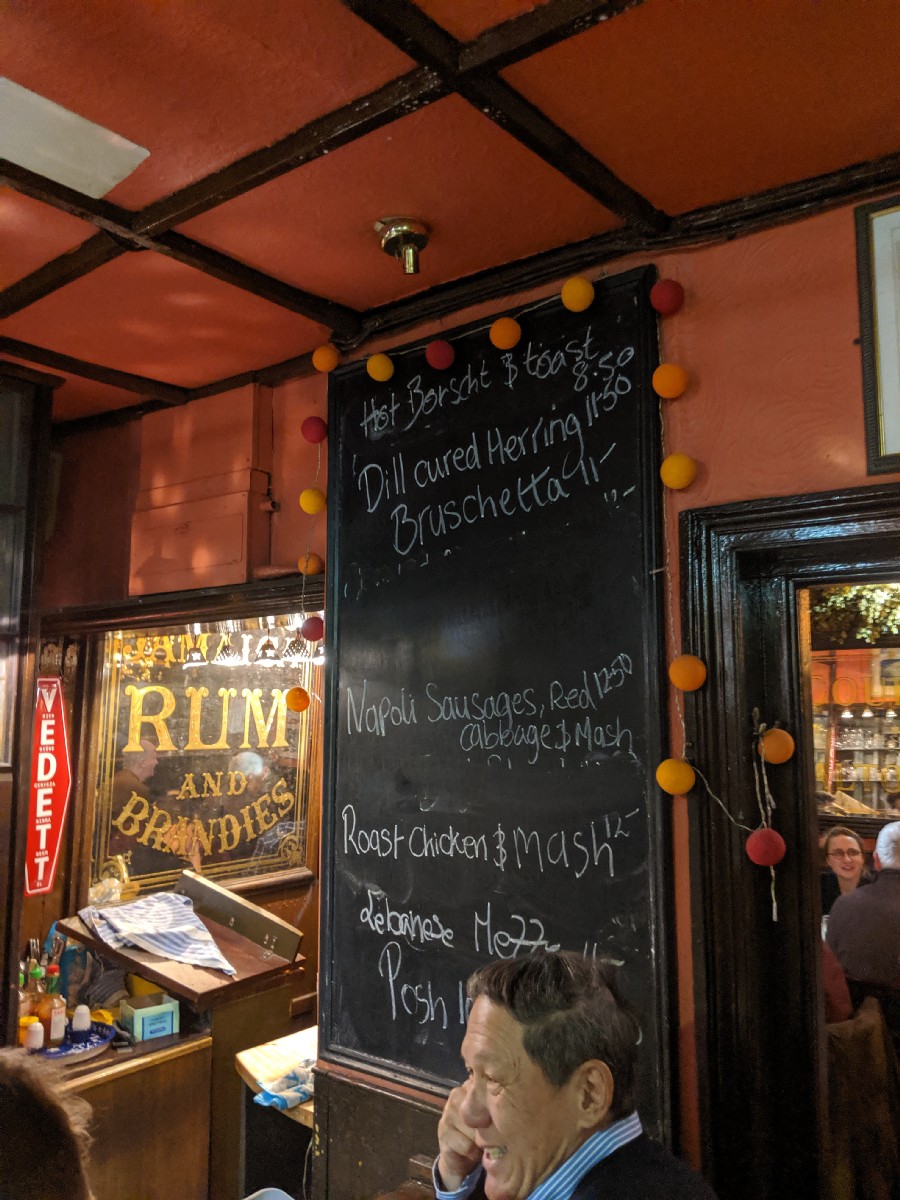 Hot Borscht & toast
8.50
Dill cured Herring 11.50
Bruschetta 11-
12-
Napoli Sausages, Red 12.50
Cabbage & Mash
Roast Chicken & Mash 12-
Lebanese Mezze
Posh
JAMAICA
RUM
AND
BRANDIES
VEDETT